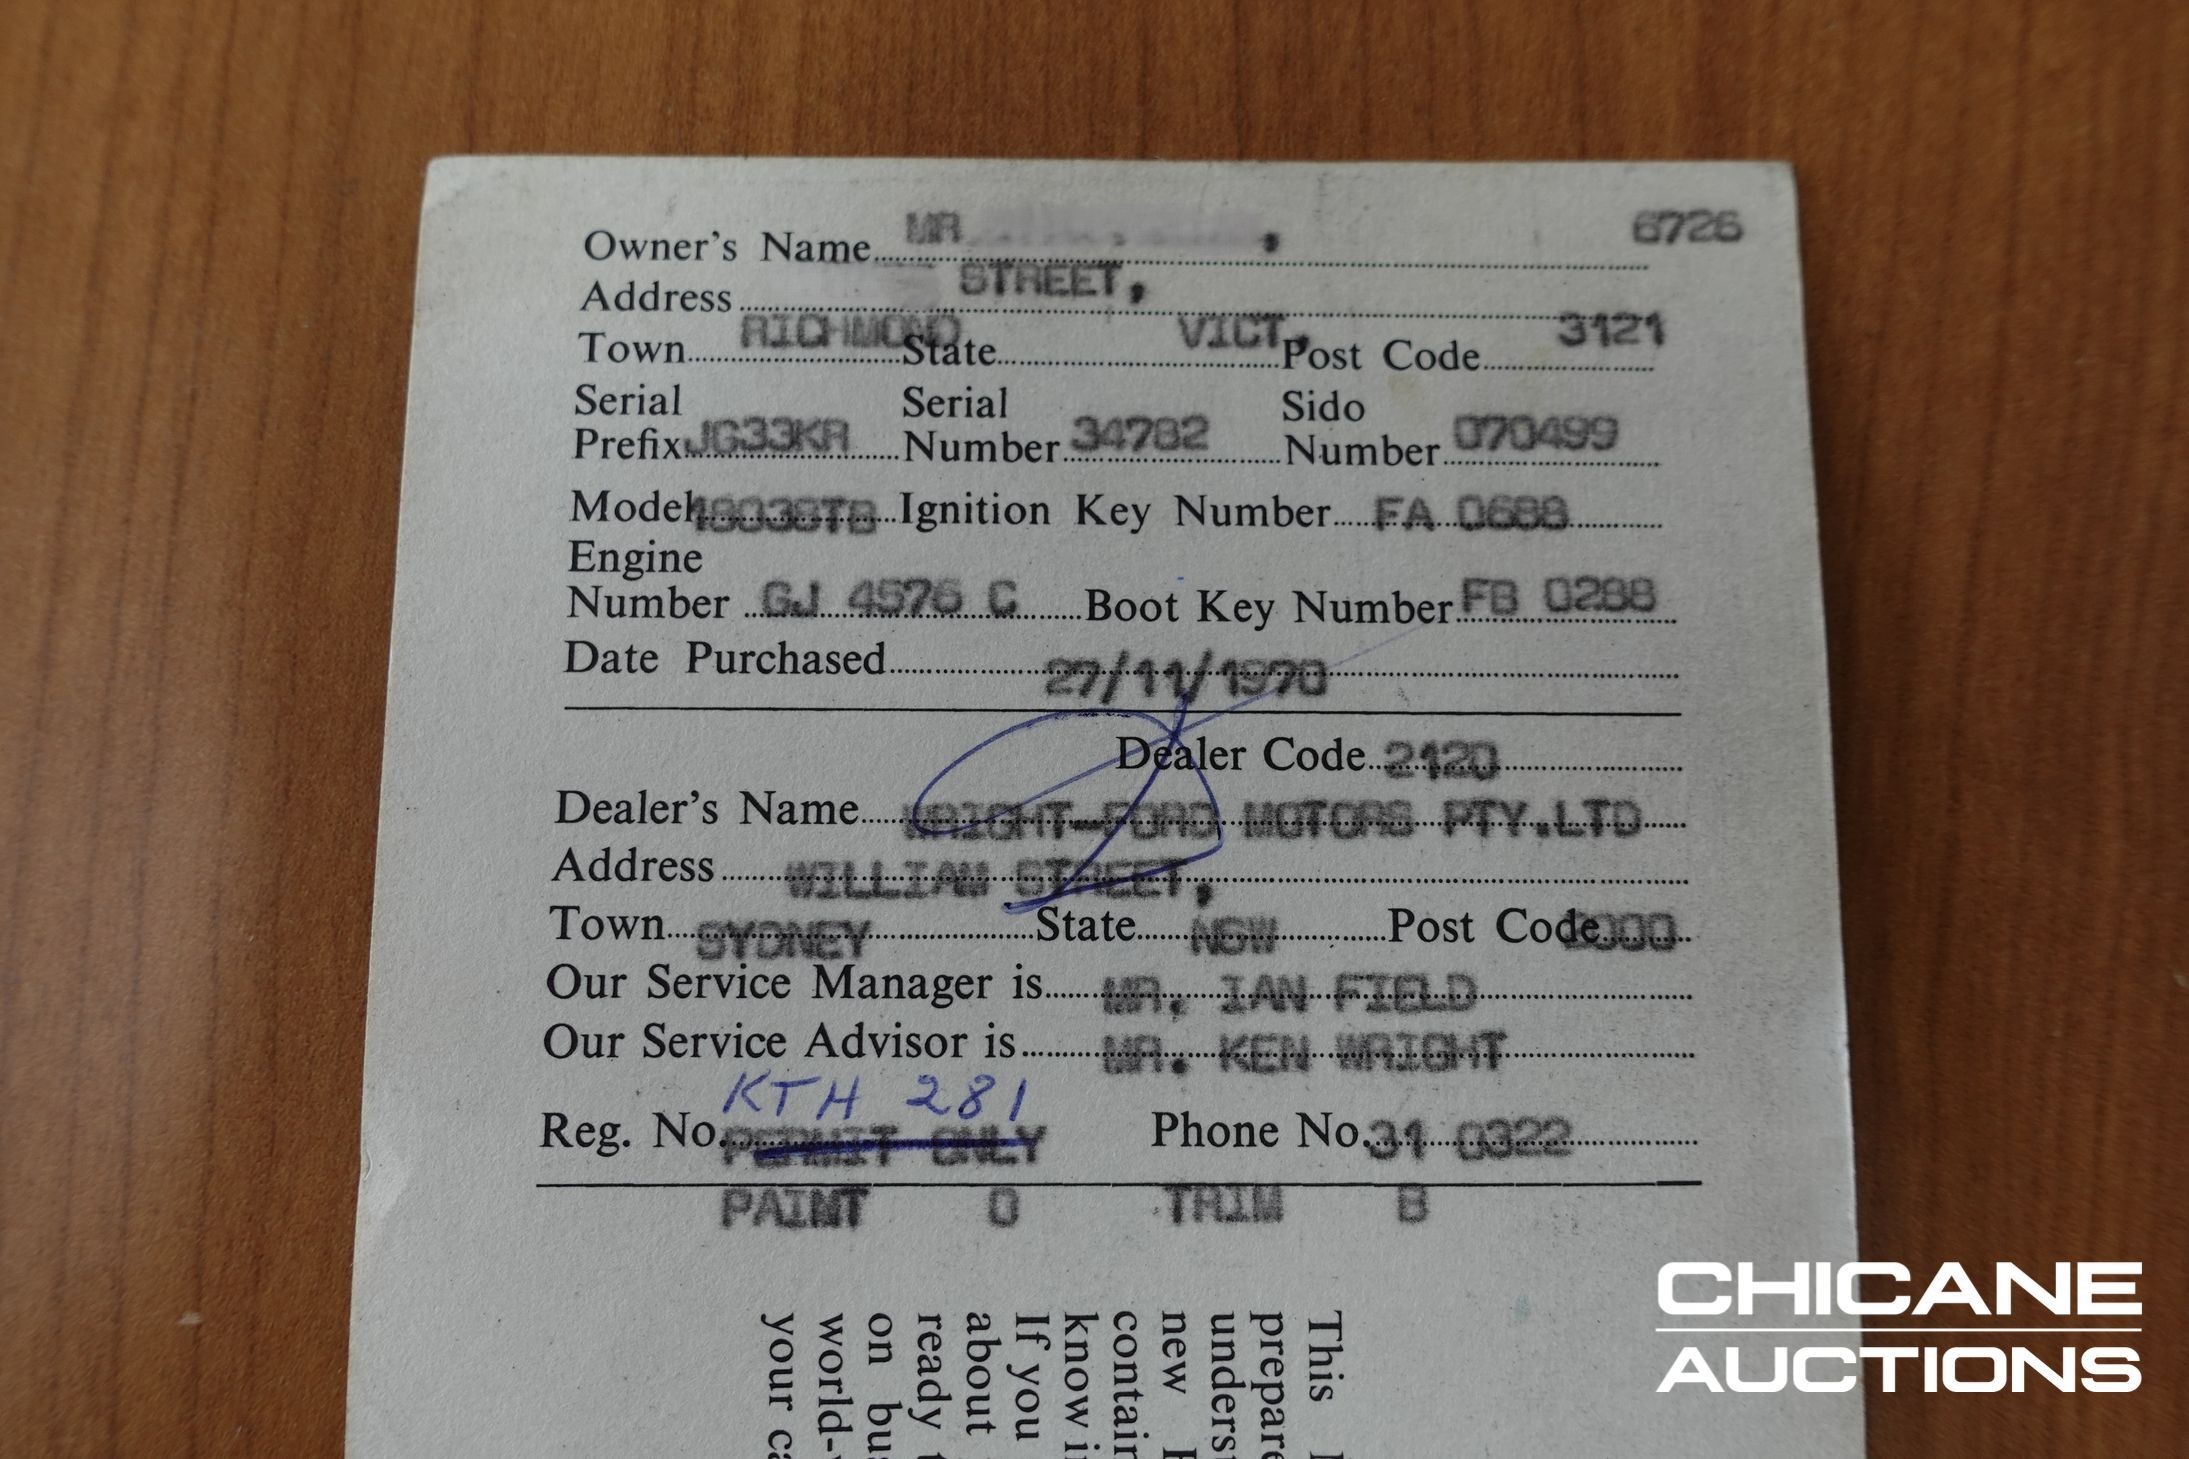 Owner's Name MR , 6726
Address STREET,
Town RICHMOND State VICT, Post Code 3121
Serial Prefix JG33KR Serial Number 34782 Sido Number 070499
Model 18038TB Ignition Key Number FA 0688
Engine Number GJ 4576 C Boot Key Number FB 0288
Date Purchased 27/11/1970
Dealer Code 2120
Dealer's Name WRIGHT-FORD MOTORS PTY.LTD
Address WILLIAM STREET,
Town SYDNEY State NSW Post Code 2000
Our Service Manager is MR. IAN FIELD
Our Service Advisor is MR. KEN WRIGHT
KTH 281
Reg. No. PERMIT ONLY Phone No. 31 0322
PAINT O TRIM B
This
prepare
unders
new
contain
know i
If you
about
ready t
on bus
world-
your ca
CHICANE
AUCTIONS